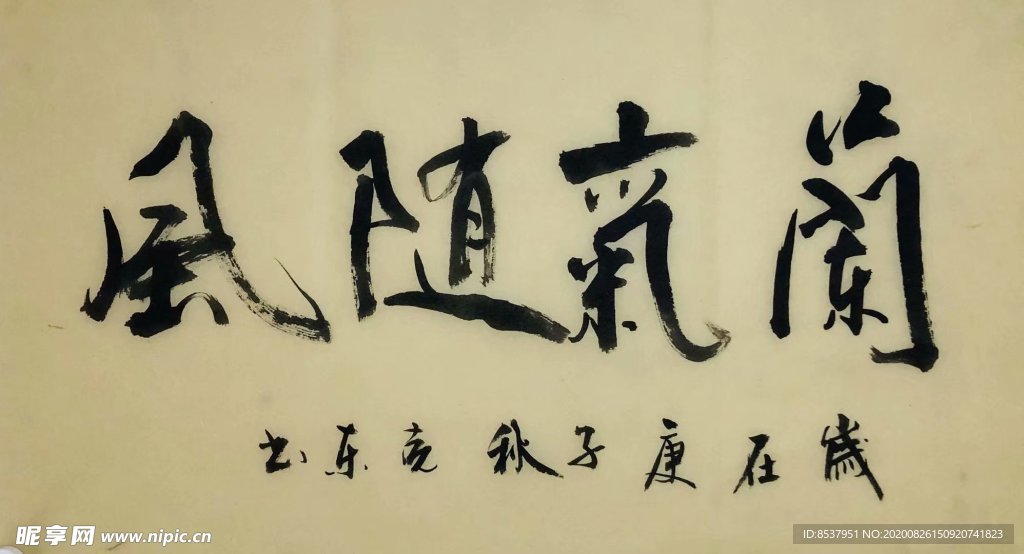 蘭氣随風
歲在庚子秋克东书
昵享网 www.nipic.cn
ID:8537951 NO:20200826150920741823